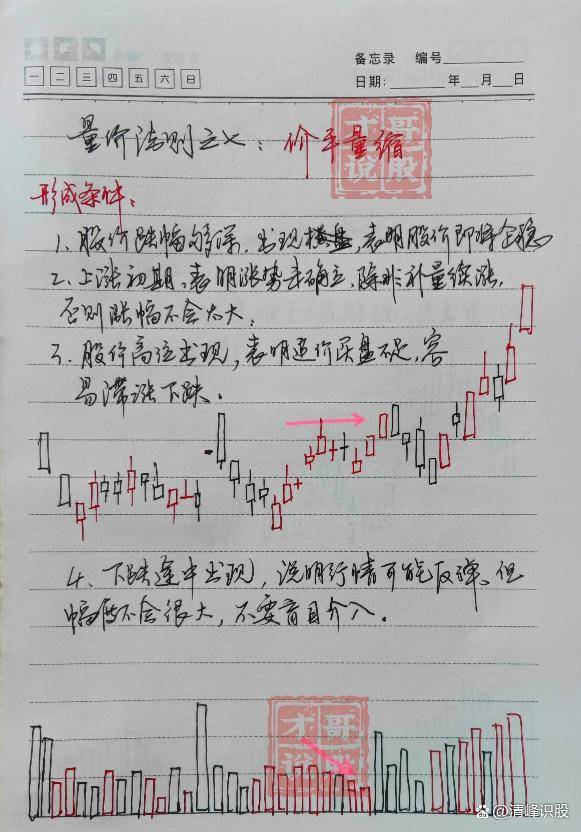 备忘录 编号
一 二 三 四 五 六 日
日期: 年 月 日
量价法则之七：价平量缩
才哥
说股
形成条件：
1、股价跌幅够深，出现横盘，表明股价即将企稳
2、上涨初期，表明涨势未确立，除非补量续涨，
否则涨幅不会太大。
3、股价高位出现，表明追价买盘不足，容
易滞涨下跌。
4、下跌途中出现，说明行情可能反弹，但
幅度不会很大，不要盲目介入。
才哥
说股
清峰识股